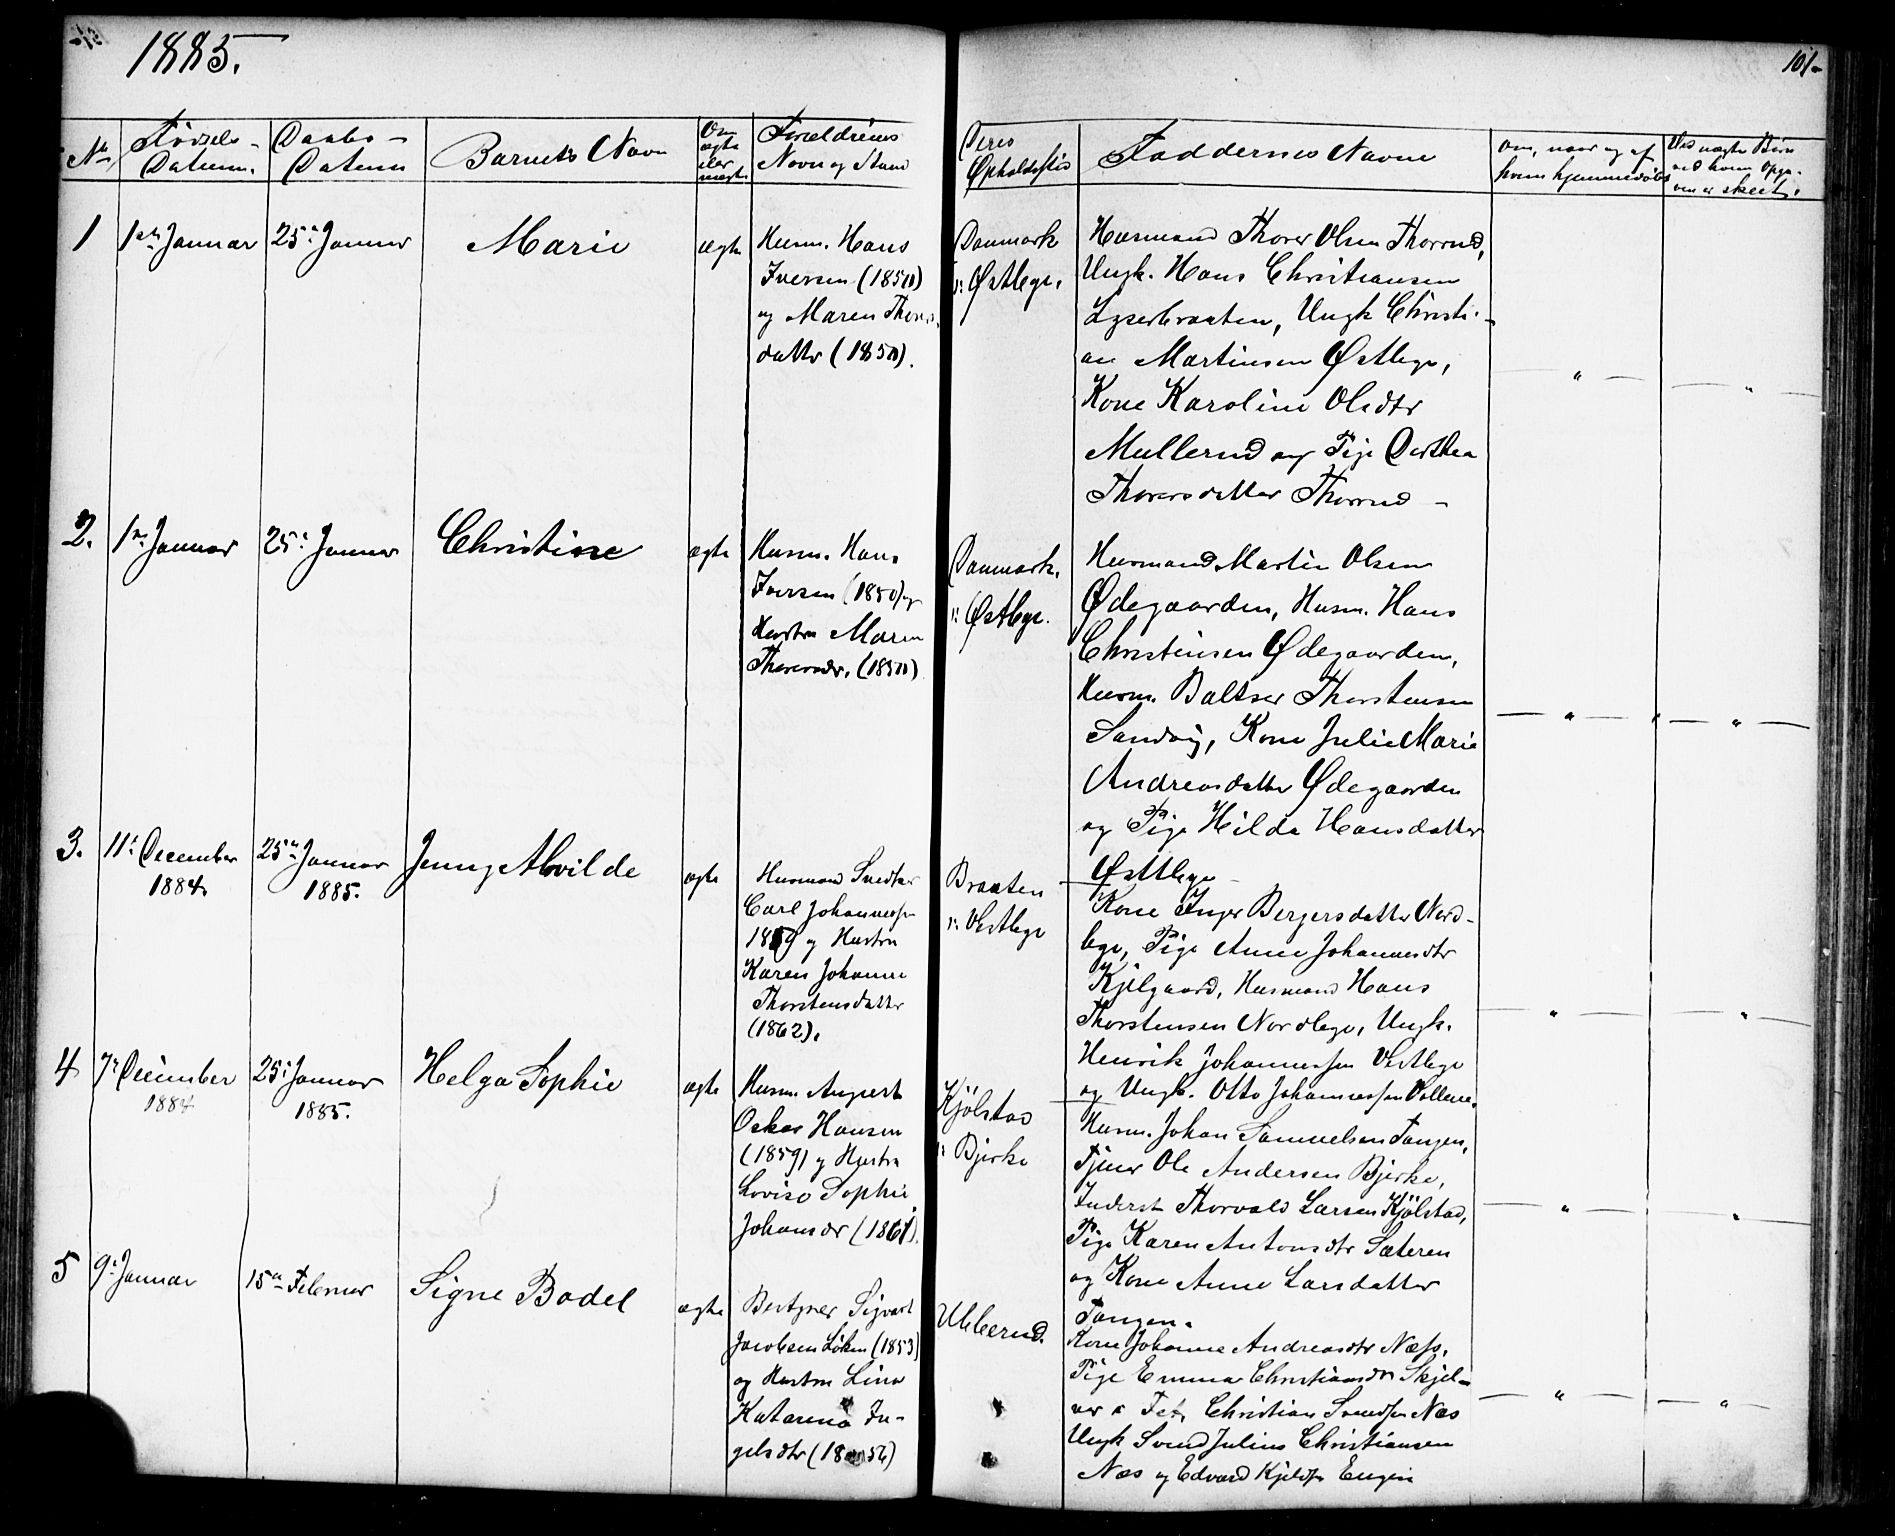 1885.
101-
No
Fødsels-
Datum.
Daabs-
Datum
Barnets Navn
Om
ægte
eller
uægte
Forældrenes
Navn og Stand
Deres
Opholdssted
Faddernes Navne
om, naar og af
hvem hjemmedøbt
Ved uægte Børn
ved hvem Opga-
ven er skeet.
1
1ste Januar
25de Januar
Marie
ægte
Husm. Hans
Iversen (1850)
og Maren Thorers
datter (1850).
Danmark
u: Østbye.
Husmand Thorer Olsen Thorrud,
Ungk. Hans Christiansen
Lyserbraaten, Ungk Christi-
an Martinsen Østbye,
Kone Karoline Olsdtr
Mullerud og Pige Dorthea
Thorersdatter Thorrud -
2.
1ste Januar
25de Januar
Christine
ægte
Husm. Hans
Iversen (1850) og
Hustru Maren
Thorersdr. (1850)
Danmark.
u: Østbye.
Husmand Martin Olsen
Ødegaarden, Husm. Hans
Christensen Ødegaarden,
Husm. Baltser Thorstensen
Sandvig, Kone Julie Marie
Andreasdatter Ødegaarden
og Pige Hilda Hansdatter
Østbye -
3.
11te December
1884.
25de Januar
1885.
Jenny Alvilde
ægte
Husmand Snedker
Carl Johannessen
1859 og Hustru
Karen Johanne
Thorstensdatter
(1862).
Braaten
u: Vestbye
Kone Inger Bergersdatter Nord-
bye, Pige Anne Johannesdtr
Kjilgaard, Husmand Hans
Thorstensen Nordbye, Ungk.
Henrik Johannessen Vestbye
og Ungk. Otto Johannessen Vollene.
4
7de December
1884
25de Januar
1885.
Helga Sophie
ægte
Husm. August
Oskar Hansen
(1859) og Hustru
Lovise Sophie
Johansdr (1861).
Kjølstad
u: Bjerke
Husm. Johan Samuelsen Tangen,
Tjener Ole Andersen Bjerke,
Inderst Thorvald Larsen Kjølstad,
Pige Karen Antonsdtr Sæteren
og Kone Anne Larsdatter
Tangen.
5
9de Januar
15de Februar
Signe Bodel
ægte
Bestyrer Sigvart
Jacobsen Løken (1853)
og Hustru Lina
Katarina In-
gelsdtr (1856)
Ulleerud.
Kone Johanne Andreasdtr Næss,
Pige Emma Christiansdtr Skjel-
ver i Fet, Christian Svendsen Næs
Ungk Svend Julius Christiansen
Næs og Edvard Kjeldsen Engen